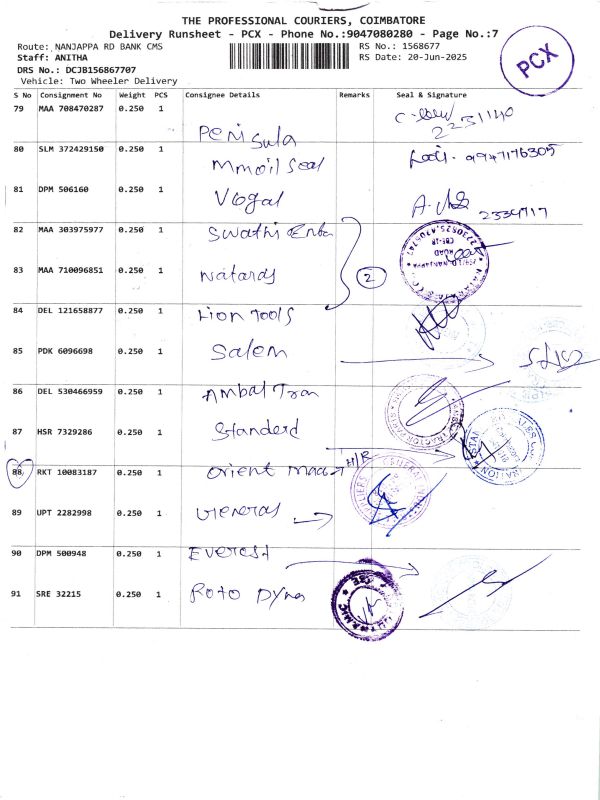 THE PROFESSIONAL COURIERS, COIMBATORE
Delivery Runsheet - PCX - Phone No.:9047080280 - Page No.:7
Route: NANJAPPA RD BANK CMS
RS No.: 1568677
Staff: ANITHA
RS Date: 20-Jun-2025
DRS No.: DCJB156867707
Vehicle: Two Wheeler Delivery
PCX
S No Consignment No Weight PCS Consignee Details Remarks Seal & Signature
79 MAA 708470287 0.250 1 Penisula 2231140
80 SLM 372429150 0.250 1 Mmoil Seal 9947176305
81 DPM 506160 0.250 1 Vogal 2334717
82 MAA 303975977 0.250 1 Swathi Enter
83 MAA 710096851 0.250 1 Natards 2
84 DEL 121658877 0.250 1 Lion Tools
85 PDK 6096698 0.250 1 Salem
86 DEL 530466959 0.250 1 Ambal Tran
87 HSR 7329286 0.250 1 Standerd
88 RKT 10083187 0.250 1 Orient H/R
89 UPT 2282998 0.250 1 General
90 DPM 500948 0.250 1 Everest
91 SRE 32215 0.250 1 Roto Dyna